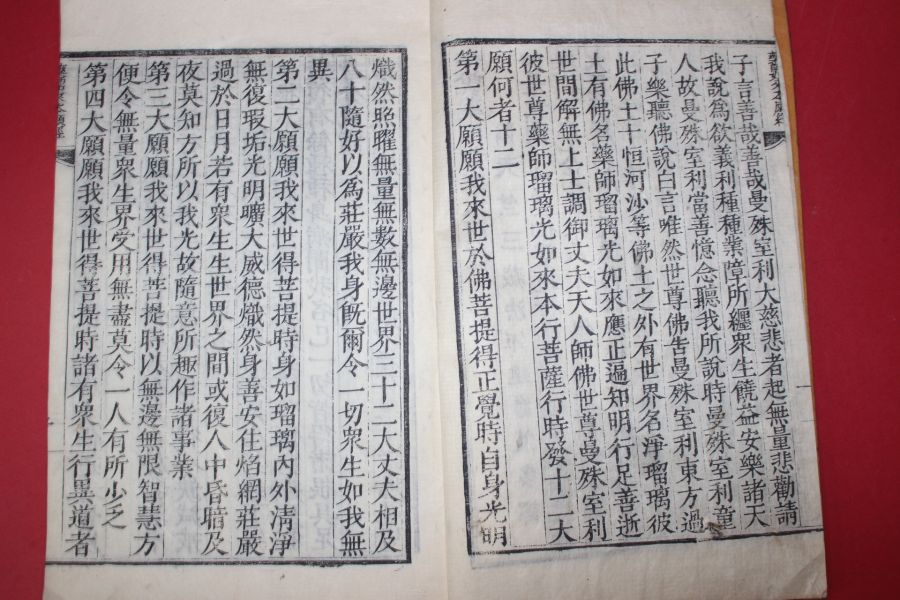 子言善哉善哉曼殊室利大慈悲者起無量悲勸請
我說為欲義利種種業障所纏眾生饒益安樂諸天
人故曼殊室利當善憶念聽我所說時曼殊室利童
子樂聽佛說白言唯然世尊佛告曼殊室利東方過
此佛土十恒河沙等佛土之外有世界名淨瑠璃彼
土有佛名藥師瑠璃光如來應正遍知明行足善逝
世間解無上士調御丈夫天人師佛世尊曼殊室利
彼世尊藥師瑠璃光如來本行菩薩行時發十二大
願何者十二
第一大願願我來世於佛菩提得正覺時自身光明
熾然照曜無量無數無邊世界三十二大丈夫相及
八十隨好以為莊嚴我身既爾令一切眾生如我無
異
第二大願願我來世得菩提時身如瑠璃內外清淨
無復瑕垢光明曠大威德熾然身善安住焰網莊嚴
過於日月若有眾生生世界之間或復人中昏暗及
夜莫知方所以我光故隨意所趣作諸事業
第三大願願我來世得菩提時以無邊無限智慧方
便令無量眾生界受用無盡莫令一人有所少乏
第四大願願我來世得菩提時諸有眾生行異道者